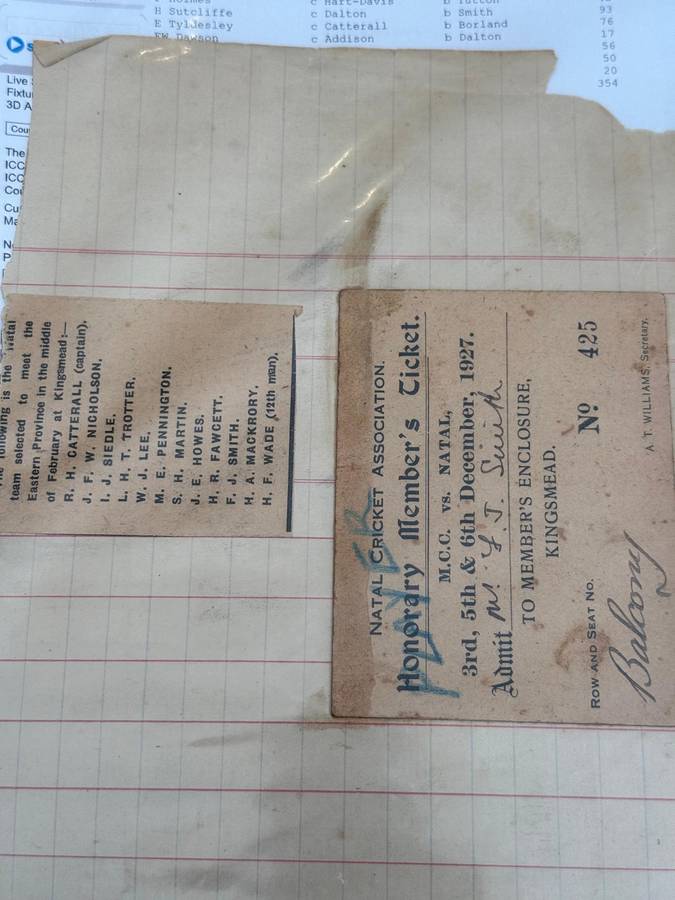 H Sutcliffe c Dalton b Smith 93
E Tyldesley c Catterall b Borland 76
c Addison b Dalton 17
56
50
20
354
Live
3D A
Cou
The
ICC
ICC
following is the Natal
team selected to meet the
Eastern Province in the middle
of February at Kingsmead:—
R. H. CATTERALL (captain).
J. F. W. NICHOLSON.
I. J. SIEDLE.
L. H. T. TROTTER.
W. J. LEE.
M. E. PENNINGTON.
S. H. MARTIN.
J. E. HOWES.
H. R. FAWCETT.
F. J. SMITH.
H. A. MACKRORY.
H. F. WADE (12th man).
NATAL CRICKET ASSOCIATION.
PLAYER
Honorary Member's Ticket.
M.C.C. vs. NATAL,
3rd, 5th & 6th December, 1927.
Admit Mr F. J. Smith
TO MEMBER'S ENCLOSURE,
KINGSMEAD.
ROW AND SEAT NO. No 425
Balcony
A. T. WILLIAMS, Secretary.